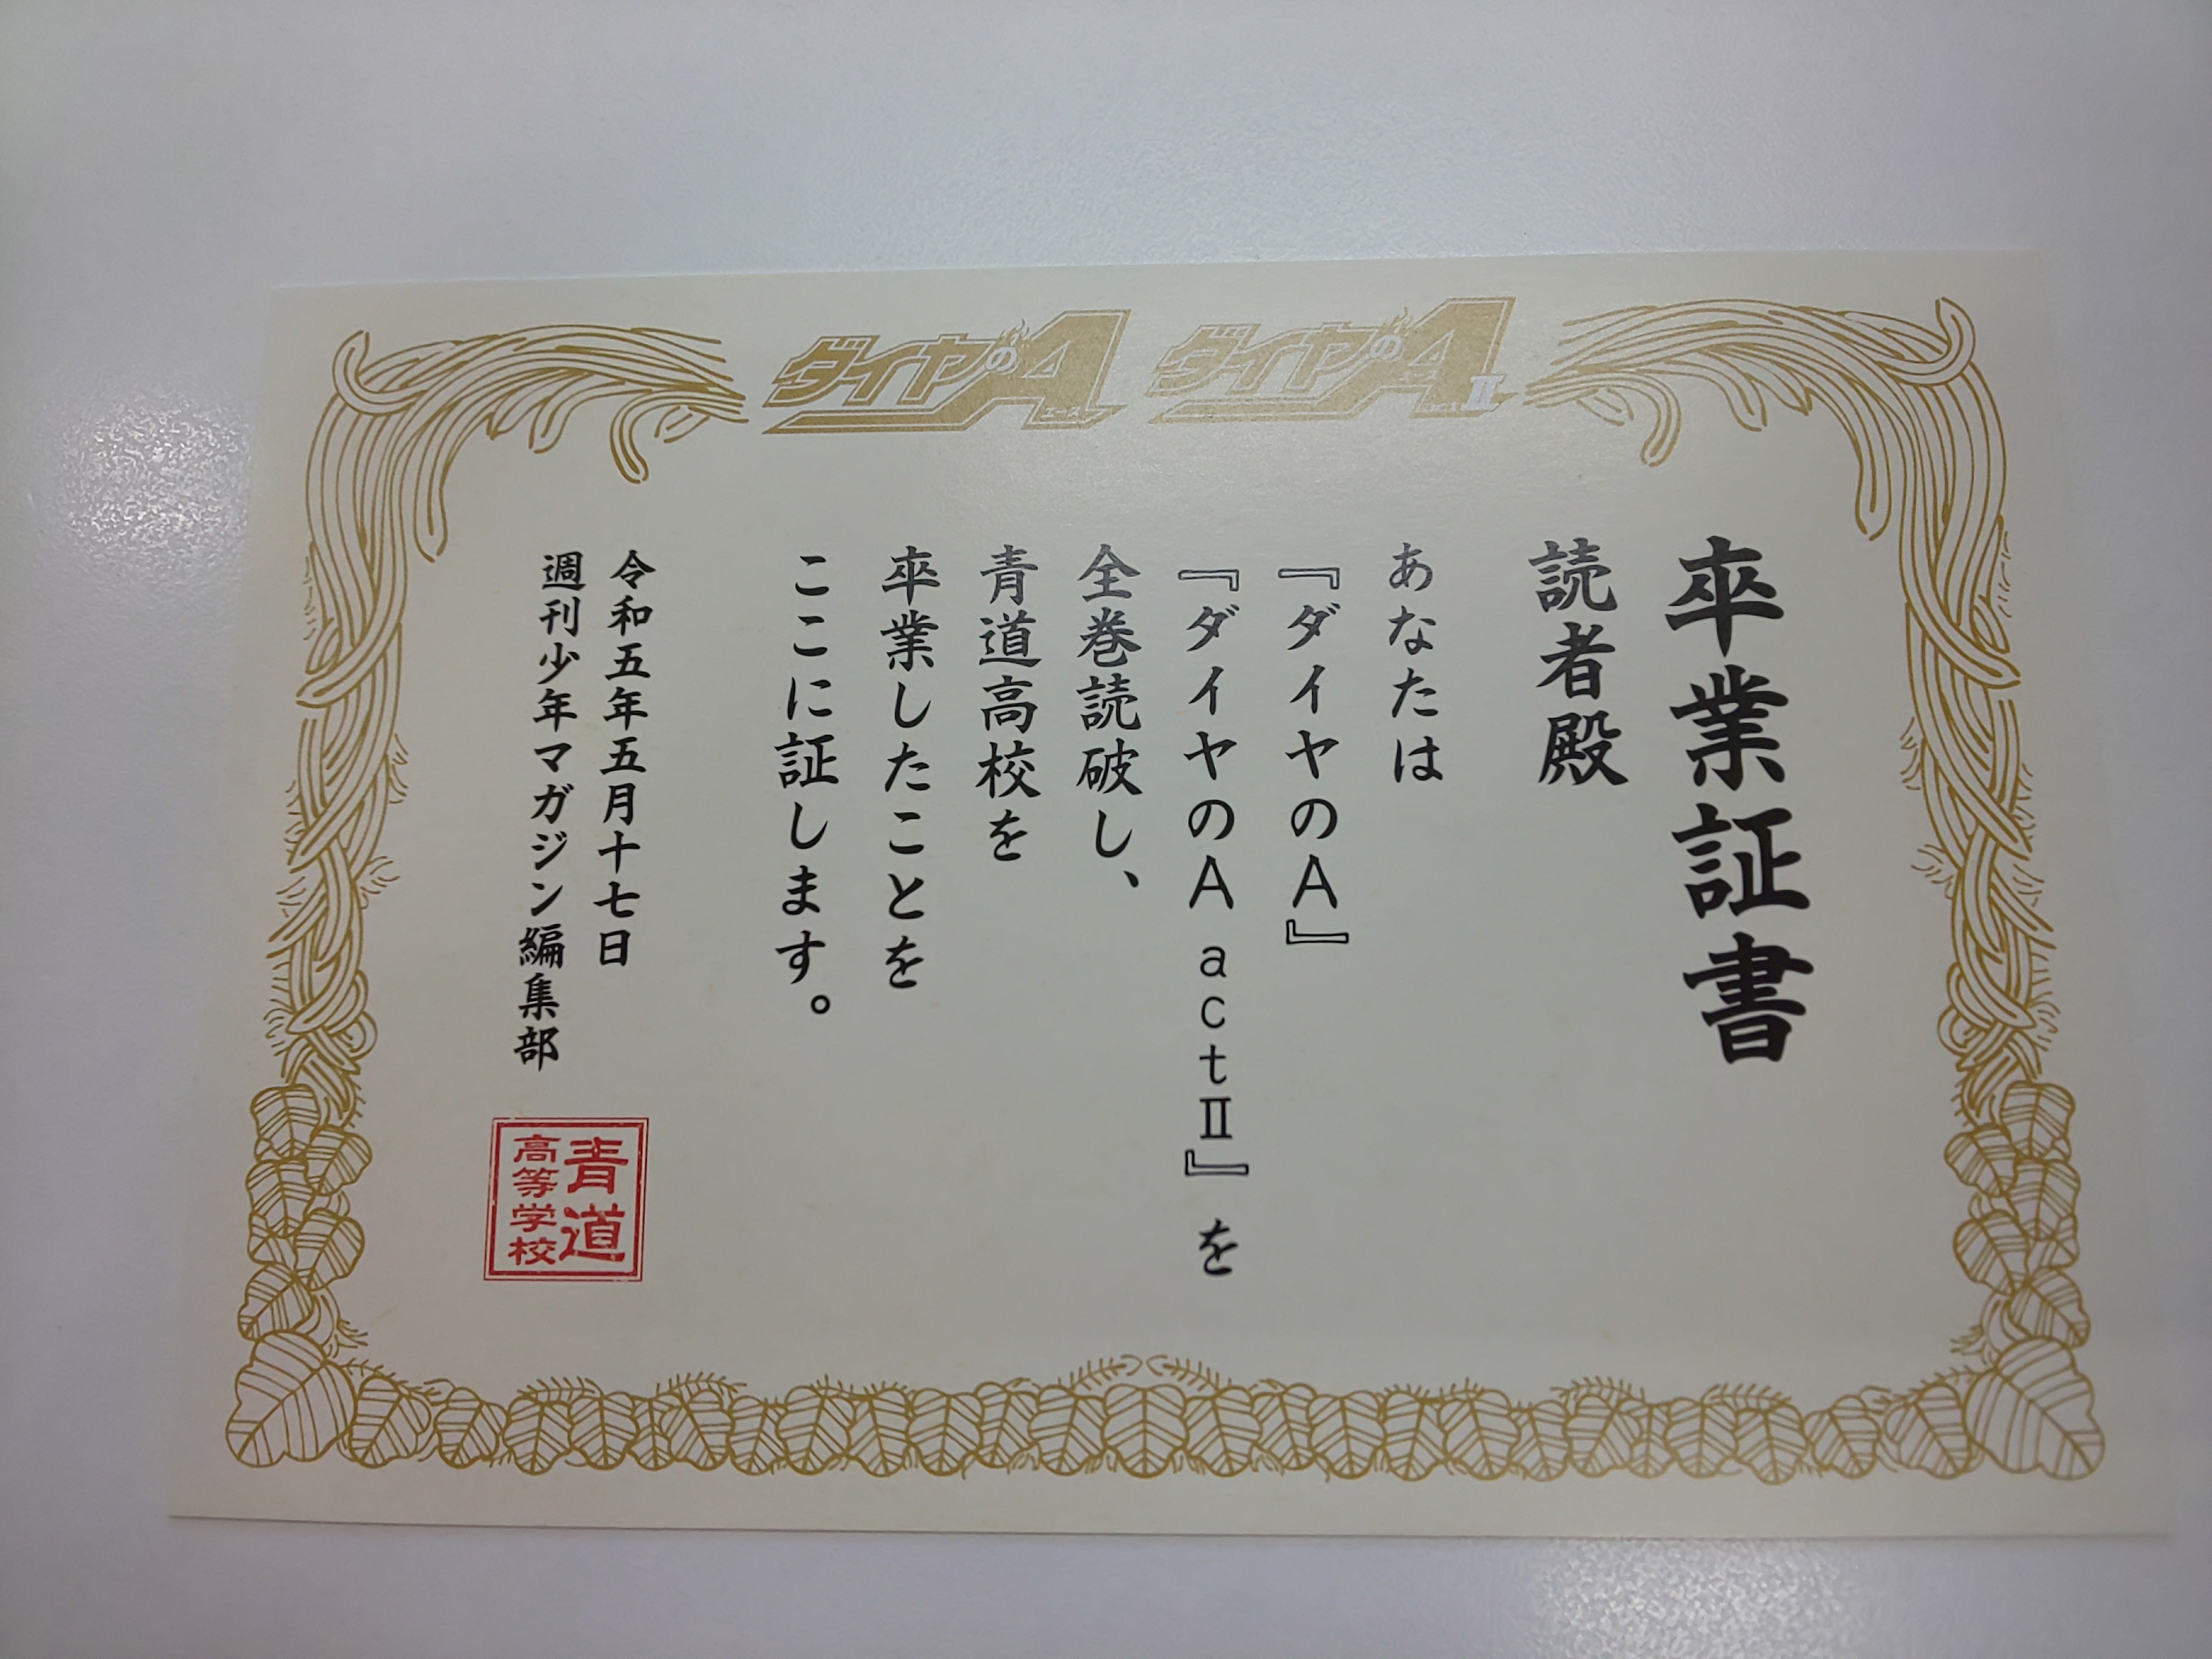 ダイヤのA エース
ダイヤのA エース II
卒業証書
読者殿
あなたは
『ダイヤのA』
『ダイヤのA actⅡ』を
全巻読破し、
青道高校を
卒業したことを
ここに証します。
令和五年五月十七日
週刊少年マガジン編集部
青道
高等学校